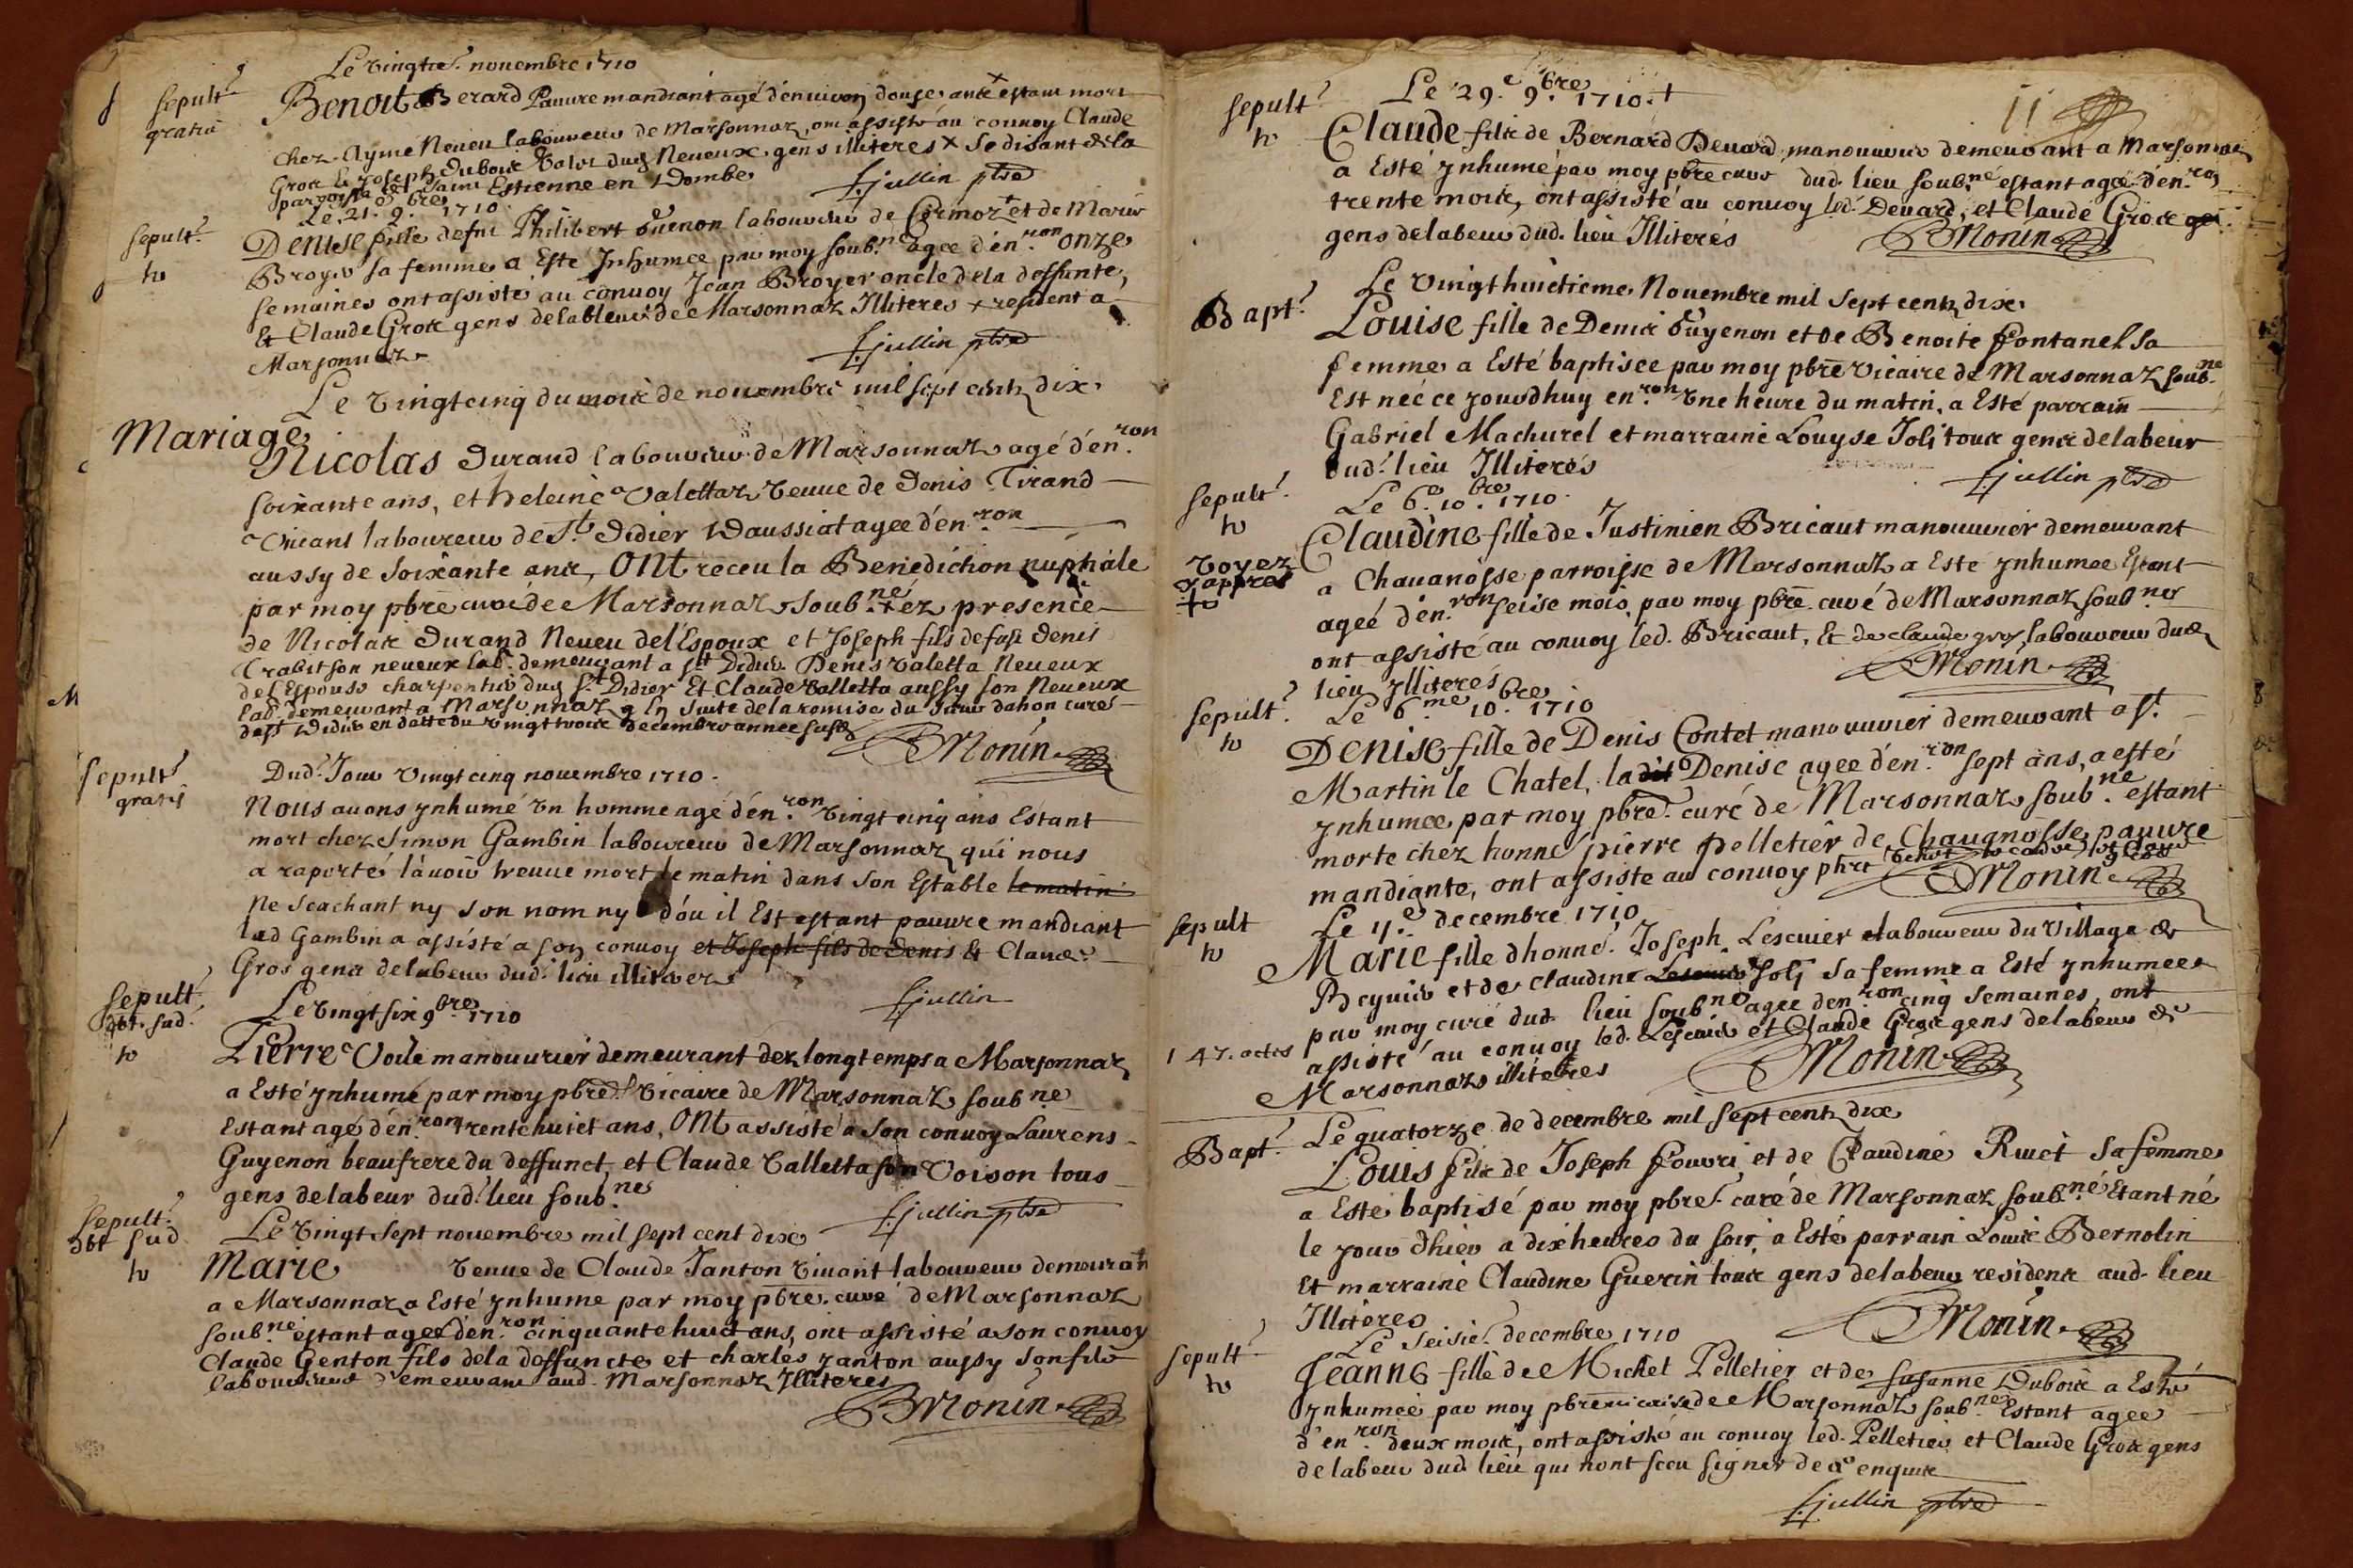 Le vingtie. novembre 1710
sepult.
gratis
Benoit Berard Pauvre mandiant agé d'environ douse ans estant mort
chez Aymé Neveu laboureur de Marsonnaz, ont assisté au convoy Claude
Gros & Joseph Dubois Valet dud Neveux gens illiteres x se disant de la
parroisse de Saint Estienne en Dombe
f. jullin ptre
Le 21. 9.bre 1710.
sepult.
Denise fille de fut Philibert Guenon laboureur de Cormoz et de Marie
Broyer sa femme a Este Inhumee par moy soub.ne agee d'en.ron onze
semaines ont assiste au convoy Jean Broyer oncle de la deffunte,
Et Claude Gros gens de labeur de Marsonnaz Illiteres x resident a
Marsonnaz
f. jullin ptre
Le vingt cinq du mois de novembre mil sept cents dix
Mariage
Nicolas Durand laboureur de Marsonnaz agé d'en.ron
soixante ans, et heleine Valettaz veuve de Denis Tirand
Vivant laboureur de St. Didier Daussiat agee d'en.ron
aussy de soixante ans, ont receu la Benediction nuptiale
par moy pbre curé de Marsonnaz soub.nez presence
de Nicolas Durand Neveu de l'Espoux et Joseph fils de feu Denis
Trabit son neveux lab. demeurant a St Didier Denis valetta Neveux
de l'Espouse charpentier dud St. Didier Et Claude Valletta aussy son Neveux
lab. demeurant a Marsonnaz en suite de la remise du Sieur dahon curé
de St Didier en datte du vingt trois decembre annee susd
BMonin
sepult.
gratis
Dud. Jour vingt cinq novembre 1710.
Nous avons ynhumé Un homme agé d'en.ron vingt cinq ans Estant
mort chez Simon Gambin laboureur de Marsonnaz qui nous
a raporté l'avoir treuve mort le matin dans son Estable le matin
Ne scachant ny son nom ny d'ou il Est estant pauvre mandiant
led Gambin a assisté a son convoy et Joseph fils de Denis & Claude
Gros gens de labeur dud. lieu illiteres
f. jullin
sepult.
dbt. sad.
Le vingt six 9.bre 1710
Pierre Voile manouvrier demeurant dez longtemps a Marsonnaz
a Esté ynhumé par moy pbre. vicaire de Marsonnaz soub ne
Estant agé d'en.ron trente huict ans, ont assisté a son convoy Laurens
Guyenon beaufrere du deffunct, et Claude Valletta son Voison tous
gens de labeur dud. lieu soub.nes
f. jullin ptre
sepult.
dbt sud
Le vingt sept novembre mil sept cent dix
Marie veuve de Claude Janton vivant laboureur demeurant
a Marsonnaz a Esté ynhume par moy pbre. curé de Marsonnaz
soub.ne estant agee d'en.ron cinquante huict ans, ont assisté a son convoy
Claude Genton fils de la deffuncte et charles Janton aussy son fils
laboureurs demeurant aud. Marsonnaz Illiteres
BMonin
11
Le 29.e 9.bre 1710. +
sepult.
Claude fils de Bernard Devard manouvrier demeurant a Marsonnaz
a Esté ynhumé par moy pbre curé dud. lieu soub.né estant agé d'en.ron
trente mois, ont assisté au convoy led. Devard, et Claude Gros
gens de labeur dud. lieu Illiterés
BMonin
Le vingt huictieme Novembre mil sept cents dix
Bapt.
Louise fille de Denis Guyenon et de Benoite Fontanel sa
femme a Esté baptisee par moy pbre vicaire de Marsonnaz soub.ne
Est née ce jourdhuy en.ron Une heure du matin. a Esté parrain
Gabriel Machurel et marraine Louyse Joli tous gens de labeur
dud. lieu Illiterés
f. jullin ptre
sepult.
Le 6.e 10.bre 1710.
voyez
y apprès
Claudine fille de Justinien Bricaut manouvrier demeurant
a Chavanosse parroisse de Marsonnaz a Esté ynhumee Estant
ageé d'en.ron seise mois, par moy pbre. curé de Marsonnaz soub.né
ont assisté au convoy led. Bricaut, Et de claude gros, laboureur dud
lieu yllitterés
BMonin
sepult.
Le 6.me 10.bre 1710
Denise fille de Denis Contet manouvrier demeurant a St.
Martin le Chatel, ladit Denise agee d'en.ron sept ans, a esté
ynhumee par moy pbre. curé de Marsonnaz soub.ne estant
morte chez honné pierre pelletier de Chavanosse pauvre
mandiante, ont assiste au convoy
BMonin
sepult
Le 11.e decembre 1710
Marie fille d'honné. Joseph Lescuier laboureur du village de
Beyvier et de Claudine Joli sa femme a Esté ynhumee
par moy curé dud. lieu soub.né agee d'en.ron cinq semaines, ont
147. actes
assisté au convoy led. Lescuier et Claude Gros gens de labeur de
Marsonnaz illiteres
BMonin
Le quatorze de decembre mil sept cents dix
Bapt.
Louis fils de Joseph Fouvri et de Claudine Ruet sa femme
a Esté baptisé par moy pbre. curé de Marsonnaz soub.né Etant né
le jour d'hier a dix heures du soir, a Esté parrain Louis Bernolin
et marraine Claudine Guerin tous gens de labeur residents aud. lieu
Illiteres
BMonin
Le seisie. decembre 1710
sepult.
Jeanne fille de Michel Pelletier et de Susanne Dubois a Esté
ynhumée par moy pbre vicaire de Marsonnaz soub.ne Estant agee
d'en.ron deux mois, ont assisté au convoy led. Pelletier et Claude Gros gens
de labeur dud. lieu qui n'ont sceu signer de ce enquis
f. jullin ptre